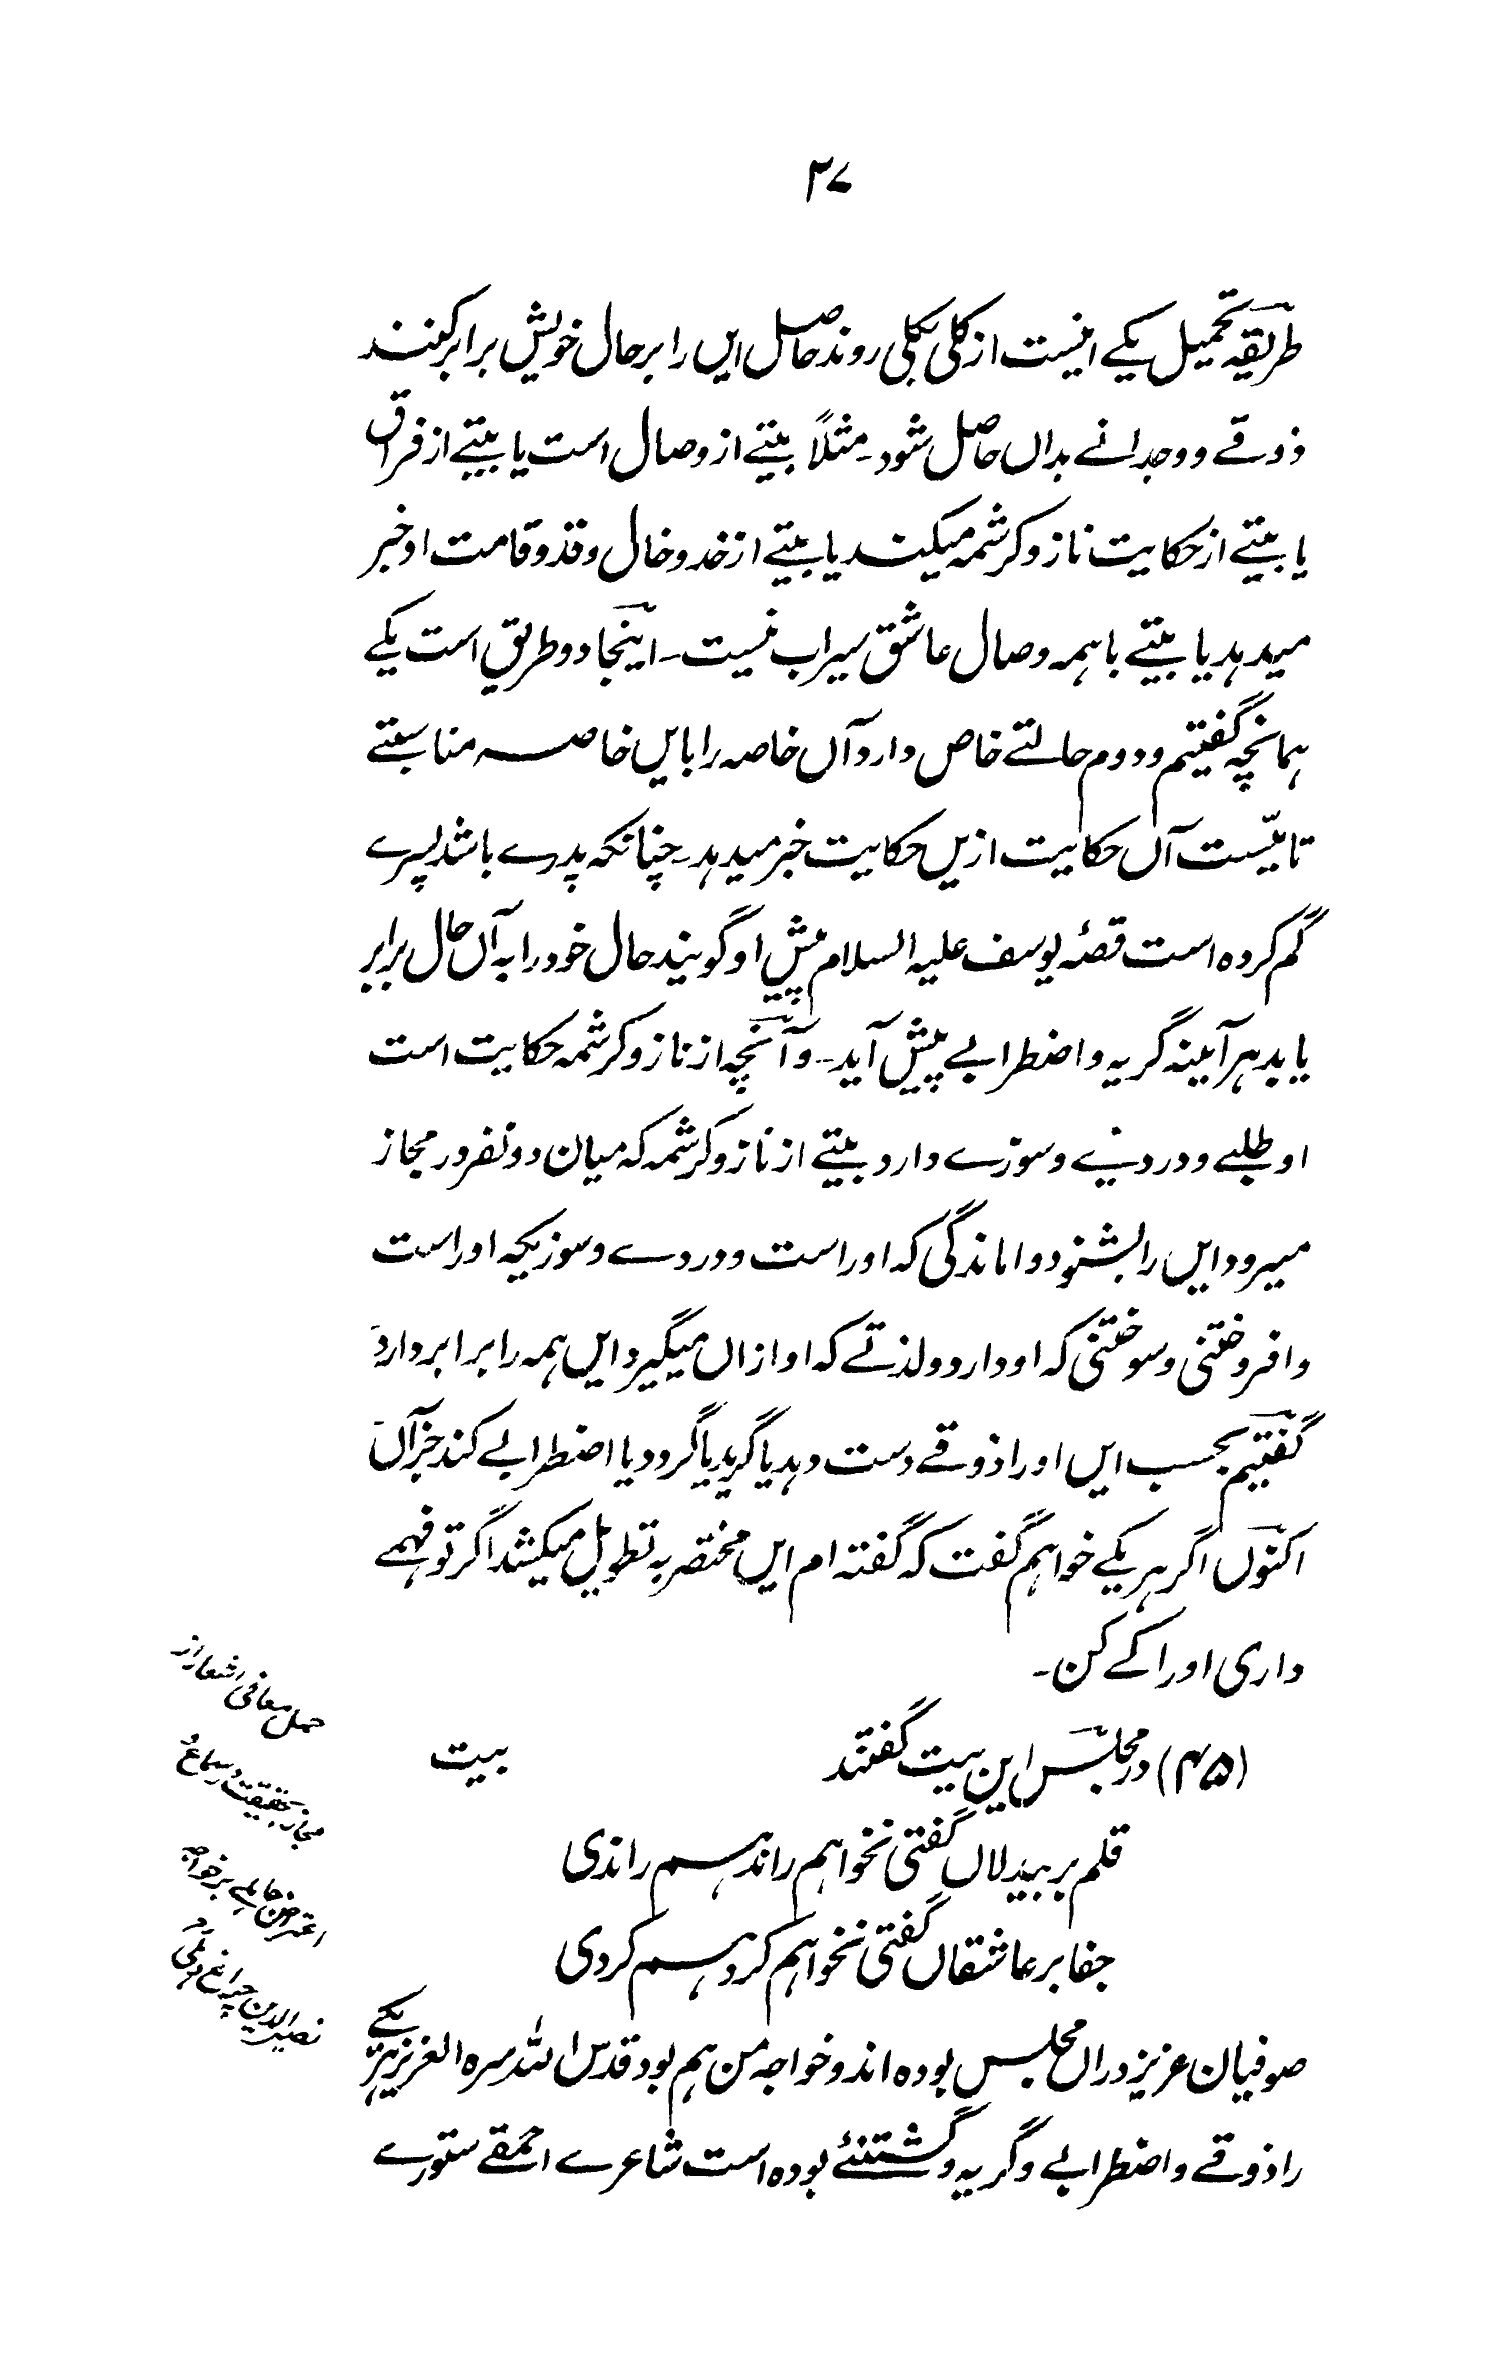 ۳۷
طریقہ تحمیل یکے اینست از کلی بکلی روند حاصل ایں را بر حال خویش برابر کنند
ذوقے و وجدانے بداں حاصل شود۔ مثلاً بیتے از وصال است یا بیتے از فراق
یا بیتے از حکایت ناز و کرشمہ میکند یا بیتے از خد و خال و قد و قامت او خبر
میدہد یا بیتے با ہمہ وصال عاشق سیراب نیست۔ اینجا دو طریق است یکے
ہمانچہ گفتیم و دوم حالتے خاص دارد آں خاصہ را بایں خاصہ مناسبتے
تامیست آں حکایت ازیں حکایت خبر میدہد۔ چنانکہ پدرے باشد پسرے
گم کردہ است قصۂ یوسف علیہ السلام پیش او گویند حال خود را بہ آں حال برابر
یابد ہر آئینہ گریہ و اضطرابے پیش آید۔ و آنچہ از ناز و کرشمہ حکایت است
او طلبے و دردے و سوزے دارد بیتے از ناز و کرشمہ کہ میان دو نفر در مجاز
میرود ایں را بشنود و اماندگی کہ اوراست و دردے و سوزیکہ اوراست
و افروختنی و سوختنی کہ او دارد و لذتے کہ او ازاں میگیرد ایں ہمہ را برابر دارد
گفتیم بحسب ایں اورا ذوقے دست دہد یا گرید یا گردد یا اضطرابے کند جز آں
اکنوں اگر ہر یکے خواہم گفت کہ گفتہ ام ایں مختصر بہ تطویل میکشد اگر تو فہمے
داری اوراکے کن۔
(۴۵) در مجلس این بیت گفتند بیت
قلم بر بیدلاں گفتی نخواہم راند ہم راندی
جفا بر عاشقاں گفتی نخواہم کرد ہم کردی
صوفیان عزیز دراں مجلس بودہ اند و خواجہ من ہم بود قدس اللہ سرہ العزیز ہر یکے
را ذوقے و اضطرابے و گریہ و گشتنئے بودہ است شاعرے احمقے ستورے
حمل معانی اشعار از
مجاز بحقیقت در سماع
اعتراض جاہلے بر خواجہ
نصیرالدین چراغ دہلی